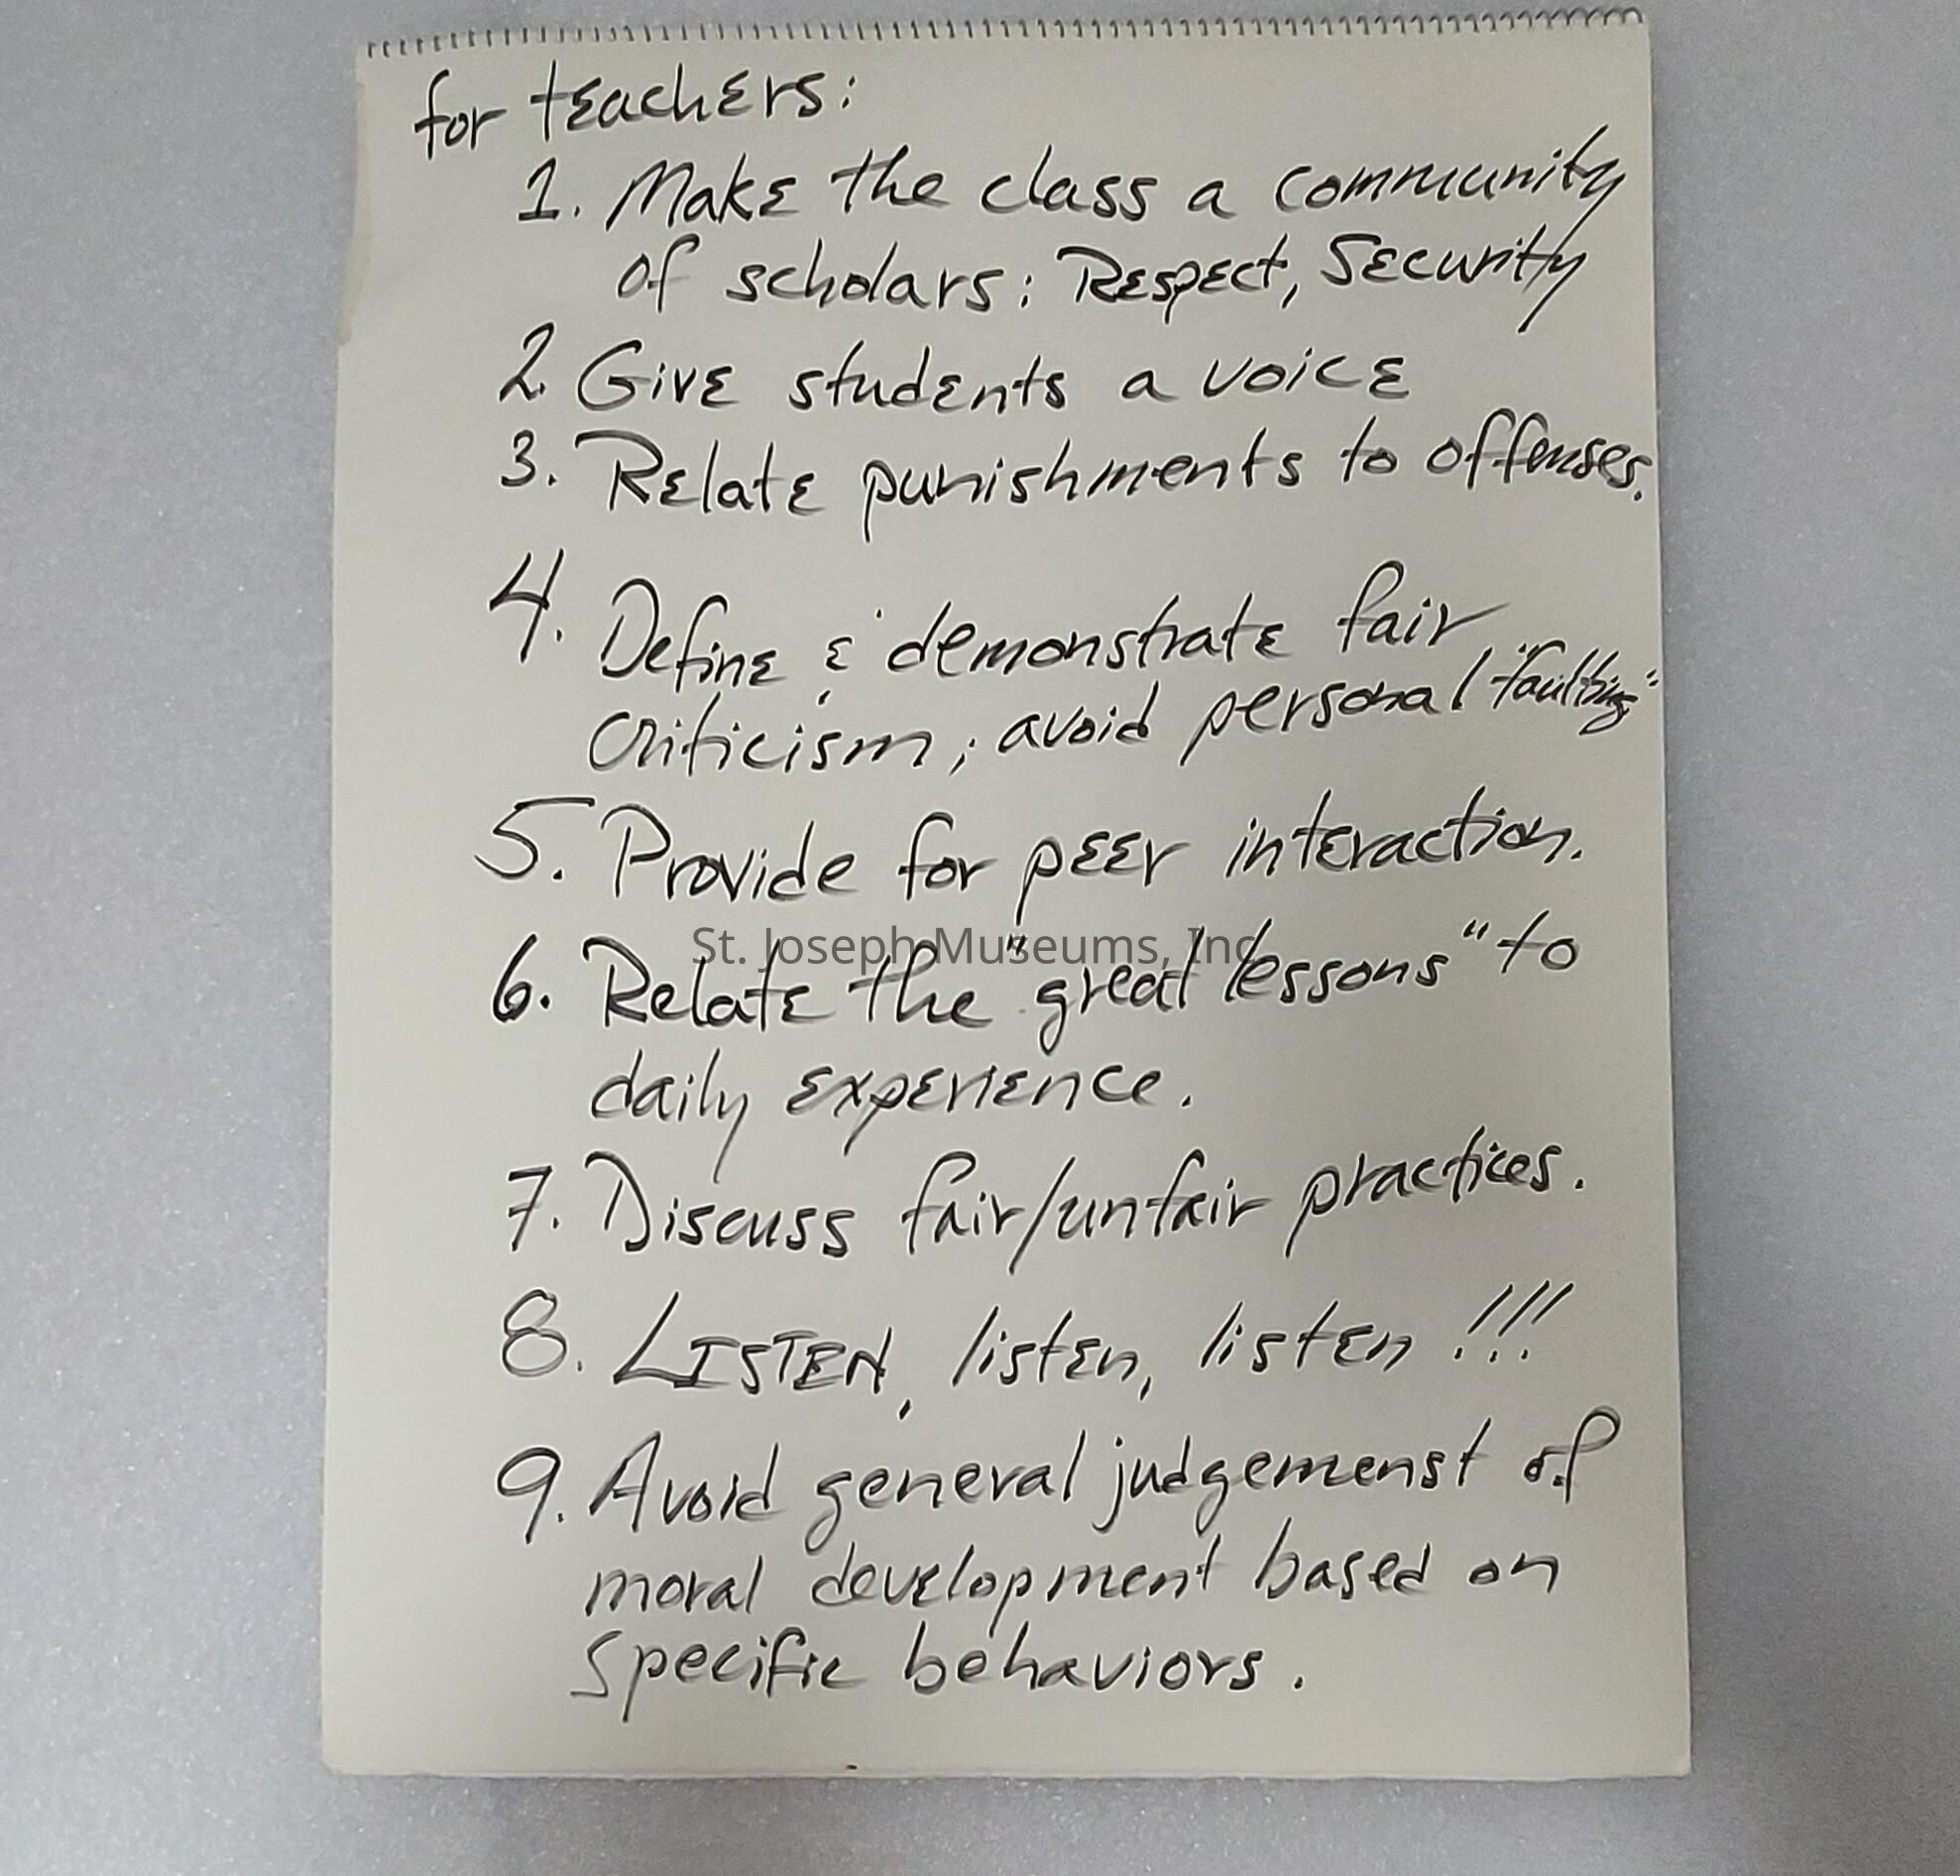 for teachers:
1. Make the class a community
of scholars: Respect, Security
2. Give students a voice
3. Relate punishments to offenses.
4. Define & demonstrate fair
criticism; avoid personal "faulting"
5. Provide for peer interaction.
St. Joseph Museums, Inc.
6. Relate the "great lessons" to
daily experience.
7. Discuss fair/unfair practices.
8. LISTEN, listen, listen!!!
9. Avoid general judgemenst of
moral development based on
specific behaviors.